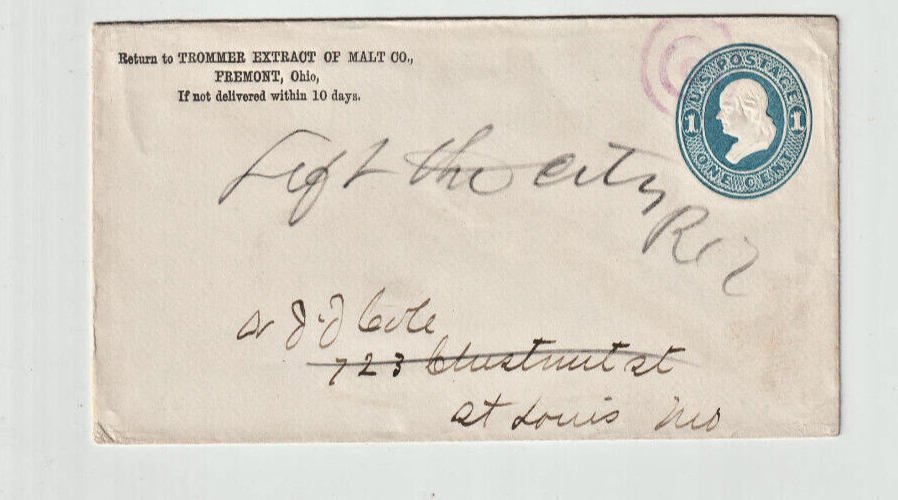 Return to TROMMER EXTRACT OF MALT CO.,
FREMONT, Ohio,
If not delivered within 10 days.
U.S. POSTAGE
1 1
ONE CENT
Left the city
J. J. Cole
723 Chestnut st
St Louis Mo